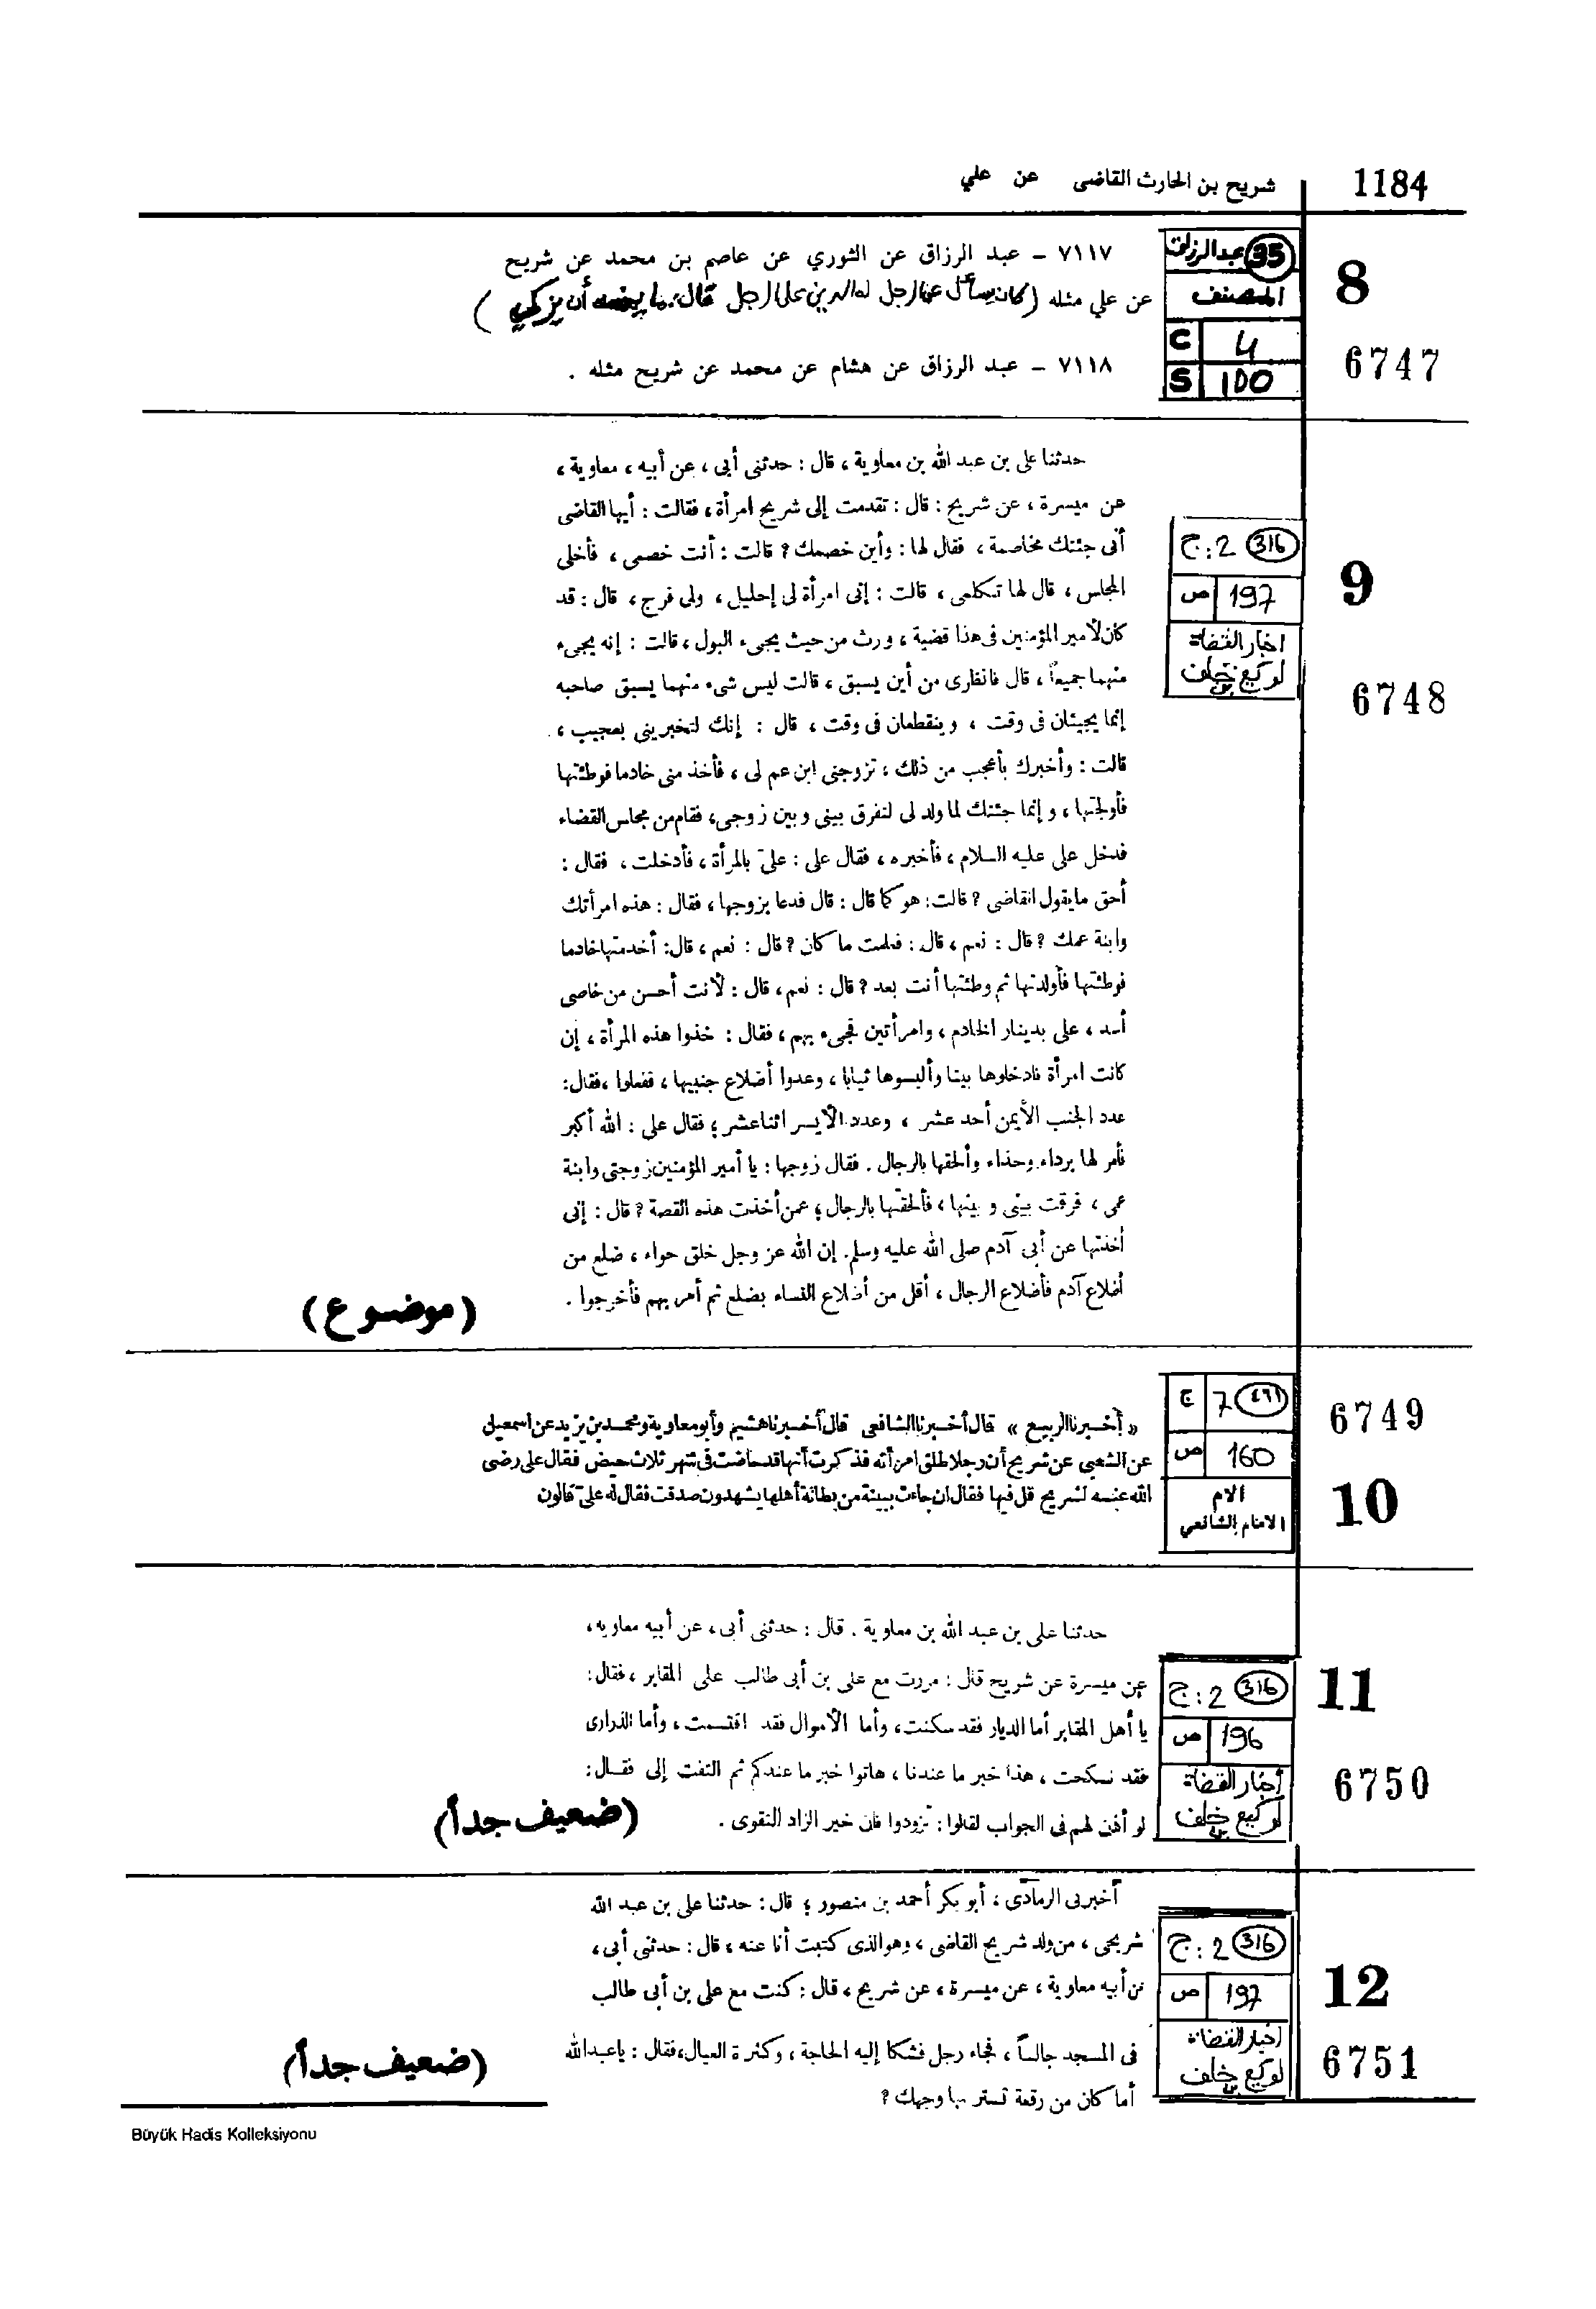 شريح بن الحارث القاضى عن علي
1184
35 عبدالرزاق
المصنف
C 4
S 100
8
6747
٧١١٧ – عبد الرزاق عن الثوري عن عاصم بن محمد عن شريح
عن علي مثله (كان يسأل عن الرجل له الدين على الرجل قال: ما يمنعه أن يزكي)
٧١١٨ – عبد الرزاق عن هشام عن محمد عن شريح مثله .
316 ج: 2
ص 197
اخبار القضاة
لوكيع بن خلف
9
6748
حدثنا على بن عبد الله بن معاوية ، قال : حدثنى أبى ، عن أبيه ، معاوية ،
عن ميسرة ، عن شريح : قال : تقدمت إلى شريح امرأة ، فقالت : أيها القاضى
أنى جئتك مخاصمة ، فقال لها : وأين خصمك ؟ قالت : أنت خصمى ، فأخلى
المجلس ، قال لها تكلمى ، قالت : إنى امرأة لى إحليل ، ولى فرج ، قال : قد
كان لأمير المؤمنين فى هذا قضية ، ورث من حيث يجىء البول ، قالت : إنه يجىء
منهما جميعاً ، قال فانظرى من أين يسبق ، قالت ليس شىء منهما يسبق صاحبه
إنما يجيئان فى وقت ، وينقطعان فى وقت ، قال : إنك لتخبرينى بعجيب ،
قالت : وأخبرك بأعجب من ذلك ، تزوجنى ابن عم لى ، فأخذ منى خادما فوطئتها
فأولجتها ، وإنما جئتك لما ولد لى لتفرق بينى وبين زوجى ، فقام من مجلس القضاء
فدخل على على عليه السلام ، فأخبره ، فقال على : علىّ بالمرأة ، فأدخلت ، فقال :
أحق مايقول القاضى ؟ قالت : هو كما قال : قال فدعا بزوجها ، فقال : هذه امرأتك
وابنة عمك ؟ قال : نعم ، قال : فعلمت ما كان ؟ قال : نعم ، قال : أخدمتها خادما
فوطئتها فأولدتها ثم وطئتها أنت بعد ؟ قال : نعم ، قال : لأنت أحسن من خاصى
أسد ، على بدينار الخادم ، وامرأتين فجىء بهم ، فقال : خذوا هذه المرأة ، إن
كانت امرأة فادخلوها بيتا وألبسوها ثيابا ، وعدوا أضلاع جنبيها ، ففعلوا ، فقال :
عدد الجنب الأيمن أحد عشر ، وعدد الأيسر اثنا عشر ؛ فقال على : الله أكبر
فأمر لها برداء وحذاء وألحقها بالرجال . فقال زوجها : يا أمير المؤمنين زوجتى وابنة
عمى ، فرقت بينى وبينها ، فألحقتها بالرجال ؛ عمن أخذت هذه القصة ؟ قال : إنى
أخذتها عن أبى آدم صلى الله عليه وسلم . إن الله عز وجل خلق حواء ، ضلع من
أضلاع آدم فأضلاع الرجال ، أقل من أضلاع النساء بضلع ثم أمر بهم فأخرجوا .
(موضوع)
٤٦١ 7 ج
ص 160
الام
الامام الشافعي
6749
10
« أخبرنا الربيع » قال أخبرنا الشافعى قال أخبرنا هشيم وأبو معاوية ومحمد بن يزيد عن اسمعيل
عن الشعبى عن شريح أن رجلا طلق امرأته فذكرت أنها قد حاضت فى شهر ثلاث حيض فقال على رضى
الله عنه لشريح قل فيها فقال ان جاءت ببينة من بطانة أهلها يشهدون صدقت فقال له علىّ قالون
316 ج: 2
ص 196
أخبار القضاة
لوكيع بن خلف
11
6750
حدثنا على بن عبد الله بن معاوية . قال : حدثنى أبى ، عن أبيه معاويه ،
عن ميسرة عن شريح قال : مررت مع على بن أبى طالب على المقابر ، فقال :
يا أهل المقابر أما الديار فقد سكنت ، وأما الأموال فقد اقتسمت ، وأما الذرارى
فقد نكحت ، هذا خبر ما عندنا ، هاتوا خبر ما عندكم ثم التفت إلى فقال :
لو أذن لهم فى الجواب لقالوا : تزودوا فان خير الزاد التقوى .
(ضعيف جداً)
316 ج: 2
ص 197
اخبار القضاة
لوكيع بن خلف
12
6751
أخبرنى الرمادى ، أبو بكر أحمد بن منصور ؛ قال : حدثنا على بن عبد الله
شريحى ، من ولد شريح القاضى ، وهو الذى كتبت أنا عنه ، قال : حدثنى أبى ،
عن أبيه معاوية ، عن ميسرة ، عن شريح ، قال : كنت مع على بن أبى طالب
فى المسجد جالساً ، فجاء رجل فشكا إليه الحاجة ، وكثرة العيال ، فقال : ياعبدالله
أما كان من رقعة تستر بها وجهك ؟
(ضعيف جداً)
Büyük Hadis Kolleksiyonu